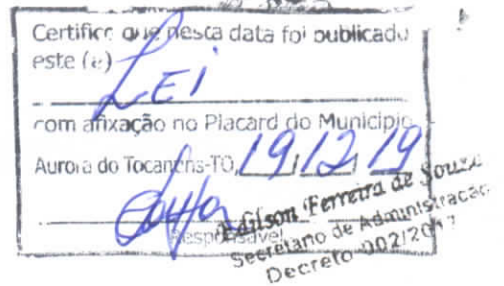 Certifico que nesta data foi publicado
este (a) LEI
com afixação no Placard do Município
Aurora do Tocantins-TO, 19/12/19
Responsável
Edilson Ferreira de Souza
Secretario de Administração
Decreto 002/2017